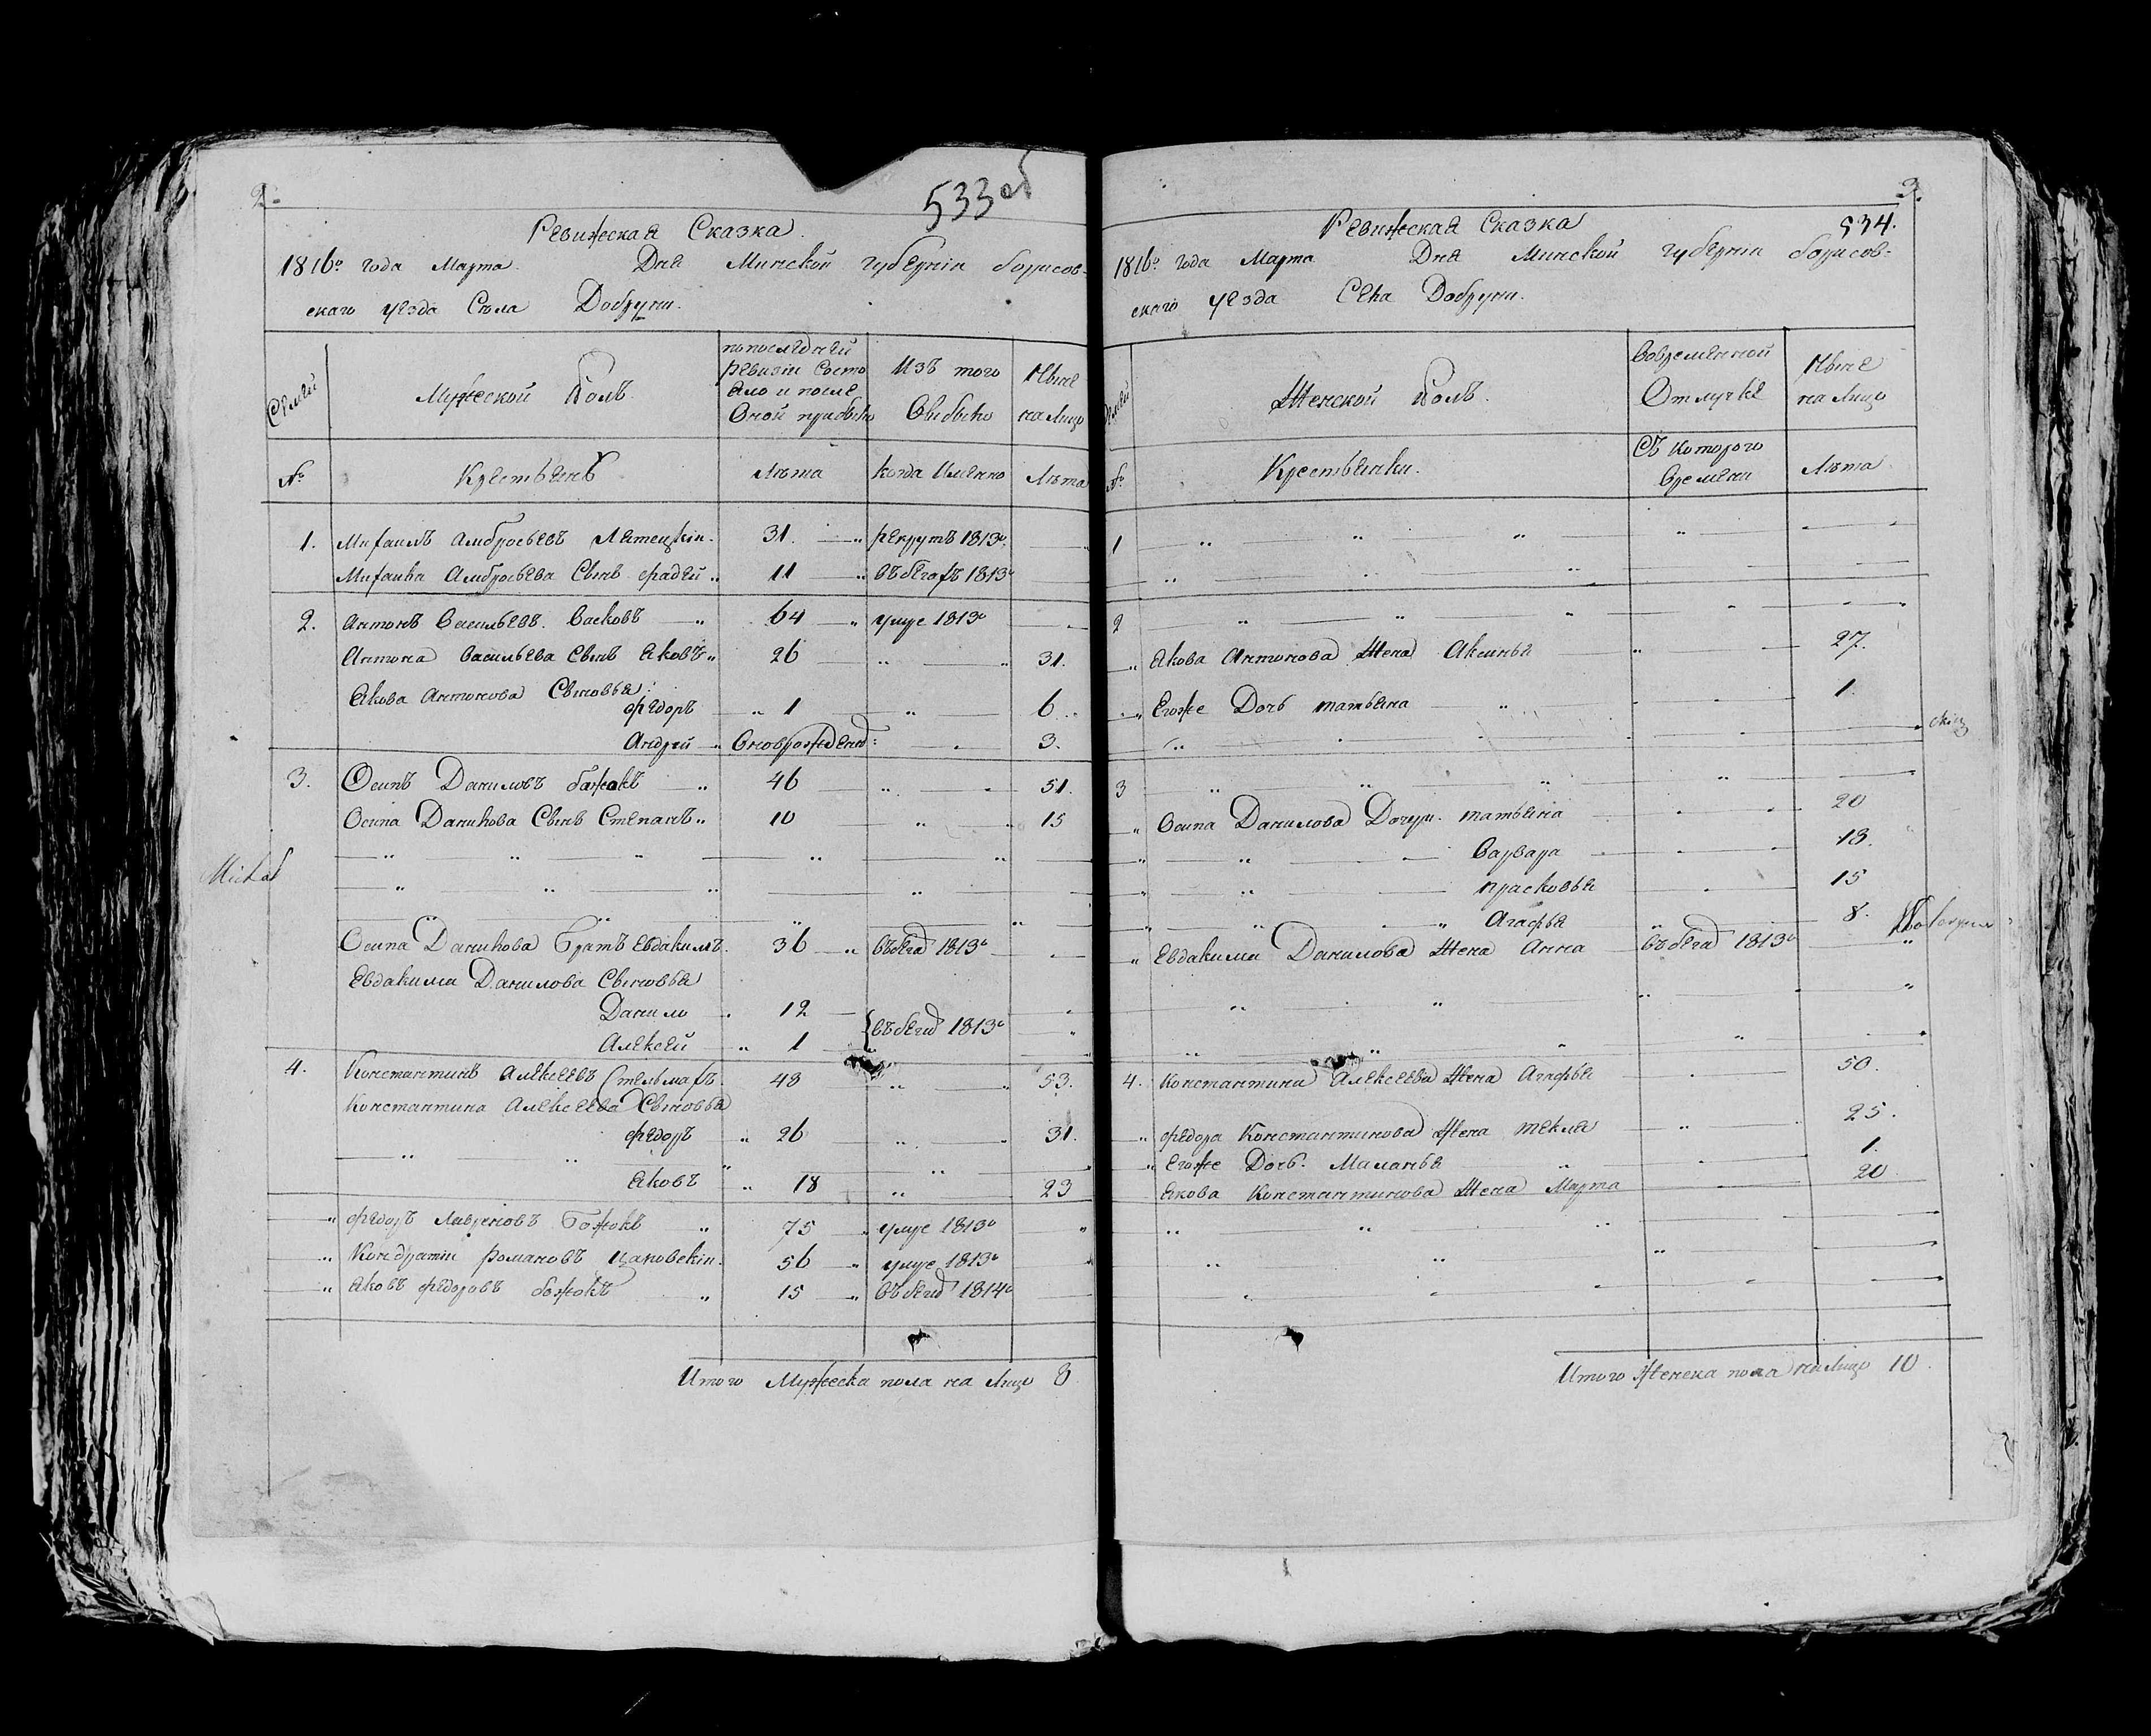 2.
533об
Ревижская Сказка.
1816го года Марта Дня Минской губерніи борисов-
скаго уезда Села Добруни.
Семей
Мужеской Полъ.
попоследней
ревизіи Состо
яло и после
Оной прибыло
Изъ того
Выбыло
Ныне
на Лицо
№
Крестьянъ
Лѣта
Когда Имянно
Лѣта
1. Михаилъ Амбросьевъ Летецкіи. 31. рекрутъ 1813го
Михаила Амбросьева Сынъ фадей 11 въ бегахъ 1813го
2. Антонъ Васильевъ Васковъ 64 умре 1813го
Антона Васильева Сынъ Яковъ 26 31.
Якова Антонова Сыновья:
федоръ 1 6
Андрей Вновьрожденъ: 3.
3. Осипъ Даниловъ божокъ 46 51.
Осипа Данилова Сынъ Степанъ 10 15
Michał
Осипа Данилова Братъ Евдакимъ 36 въбега 1813го
Евдакима Данилова Сыновья
Данило 12
въ бега 1813го
Алексей 1
4. Константинъ Алексеевъ Стельмахъ 48 53.
Константина Алексеева Сыновья
федоръ 26 31.
Яковъ 18 23
федоръ Лавреновъ Божокъ 75 умре 1813го
Кондратіи Романовъ Цановскіи. 56 умре 1813го
Яковъ федоровъ божокъ 15 въ бега 1814го
Итого Мужеска пола на Лицо 8
3.
534.
Ревижская Сказка
1816го года Марта Дня Минской губерніи борисов-
скаго уезда Села Добруни.
Семей
Женской Полъ.
Вовременной
Отлучке
Ныне
на Лицо
№
Крестьянки.
Съ которого
Времени
Лѣта
1
2
Якова Антонова Жена Аксинья 27.
Егоже Дочь татьяна 1.
3
Осипа Данилова Дочери татьяна 20
Варвара 18.
прасковья 15
Агафья 8.
Евдакима Данилова Жена Анна въбега 1813го
4. Константина Алексеева Жена Агафья 50.
федора Константинова Жена текля 25.
Егоже Дочь. Маланья 1.
Якова Константинова Жена Марта 20
Итого Женска пола на Лицо 10.